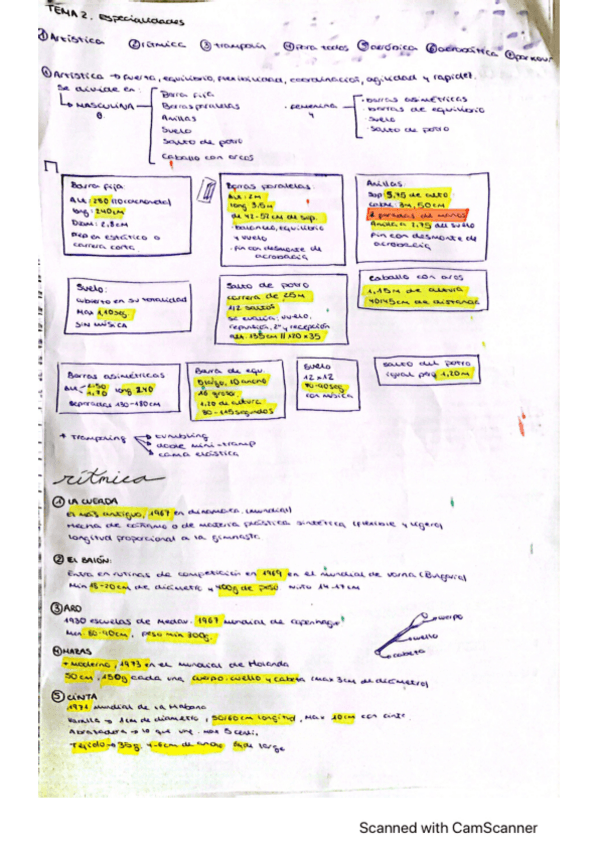 TEMA 2. Especialidades
① Artística ② rítmica ③ trampolín ④ para todos ⑤ aeróbica ⑥ acrobática ⑦ parkour
① Artística → fuerza, equilibrio, flexibilidad, coordinación, agilidad y rapidez.
Se divide en:
MASCULINA
Barra fija
Barras paralelas
Anillas
Suelo
Salto de potro
Caballo con arcos
FEMENINA
barras asimétricas
barras de equilibrio
suelo
Salto de potro
Barra fija:
long: 240cm
Diam: 2,8cm
carrera corta
Barras paralelas:
Alt: 2m
long 3,5m
de 42-52cm de sep.
balanceo, equilibrio
y vuelo
fin con desmonte de
acrobacia
Anillas
Sop 5,75 de alto
cable: 3m, 50cm
2 paradas de manos
Anilla a 2,75 del suelo
fin con desmonte de
acrobacia
Suelo:
cubierto en su totalidad
Max 1,10seg.
SIN MÚSICA
Salto de potro
carrera de 25m
1/2 saltos
Se evalúa: vuelo,
repulsión, 2º y recepción
Alt 135cm // 120 x 35
Caballo con arcos
1,15m de altura
40/45cm de distancia
Barras asimétricas
long 240
separadas 130-180cm
Barra de equ.
5largo, 10 ancho
16 grosor
1,20 de altura
80-115segundos
Suelo
12x12
80-90seg
con música
Salto del potro
igual pero 1,20m
* Trampoling
tumbling
doble mini-tramp
cama elástica
rítmica
① LA CUERDA
el más antiguo, 1967 en dinamarca. (mundial)
Hecha de cáñamo o de materia plástica sintética (flexible y ligera)
longitud proporcional a la gimnasta
② EL BALÓN:
Entra en rutinas de competición en 1969 en el mundial de varna (Bulgaria)
Min 18-20cm de diámetro y 400g de peso niño 14-17cm
③ ARO
1930 escuelas de Medau. 1967 mundial de copenhage
Min. 80-90cm, peso min 300g.
cuerpo
cuello
cabeza
④ MAZAS
+ moderno, 1973 en el mundial de Holanda
50cm, 150g cada una, cuerpo, cuello y cabeza (max 3cm de diámetro)
⑤ CINTA
1971 mundial de La Habana
Varilla → 1cm de diámetro, 50/60cm longitud, Max 10cm con cinta
Abrazadera → lo que une. max 5 cent.
Tejido → 35g. 4-6cm de ancho 6m de largo
Scanned with CamScanner